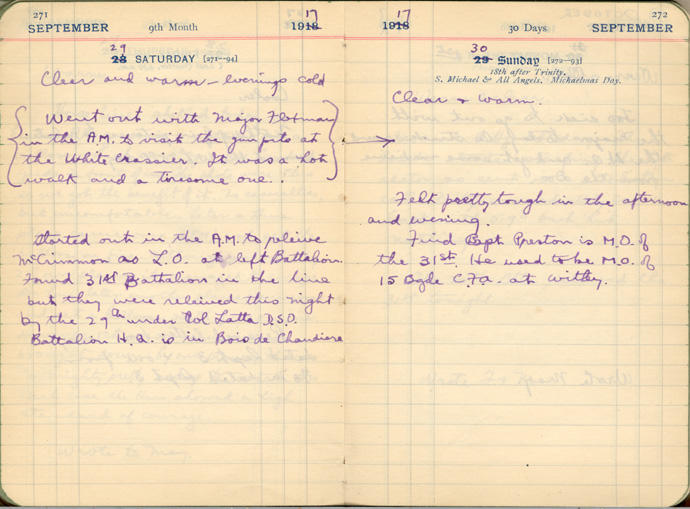 271
SEPTEMBER 9th Month 1918 17
29
28 SATURDAY [271-94]
Clear and warm - evenings cold
Went out with Major Flexman
in the A.M. to visit the gunpits at
the White Crassier. It was a hot
walk and a tiresome one..
Started out in the A.M. to releive
McCrimmon as L.O. at left Battalion.
Found 31st Battalion in the line
but they were releived this night
by the 29th under Col Latta D.S.O.
Battalion H.Q. is in Bois de Chaudiere
17
1918 30 Days 272
SEPTEMBER
30
29 Sunday [272-93]
18th after Trinity.
S. Michael & All Angels. Michaelmas Day.
Clear & Warm.
Felt pretty tough in the afternoon
and evening.
Find Capt Preston is M.O. of
the 31st. He used to be M.O. of
15 Bgde C.F.A. at Witley.